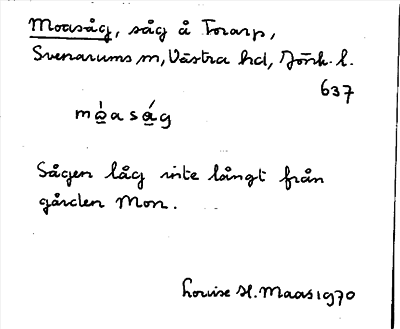 Moasåg, såg å Torarp,
Svenarums sn, Västra hd, Jönk. l.
637
mòasåg
Sågen låg inte långt från
gården Mon.
Louise H. Maas 1970